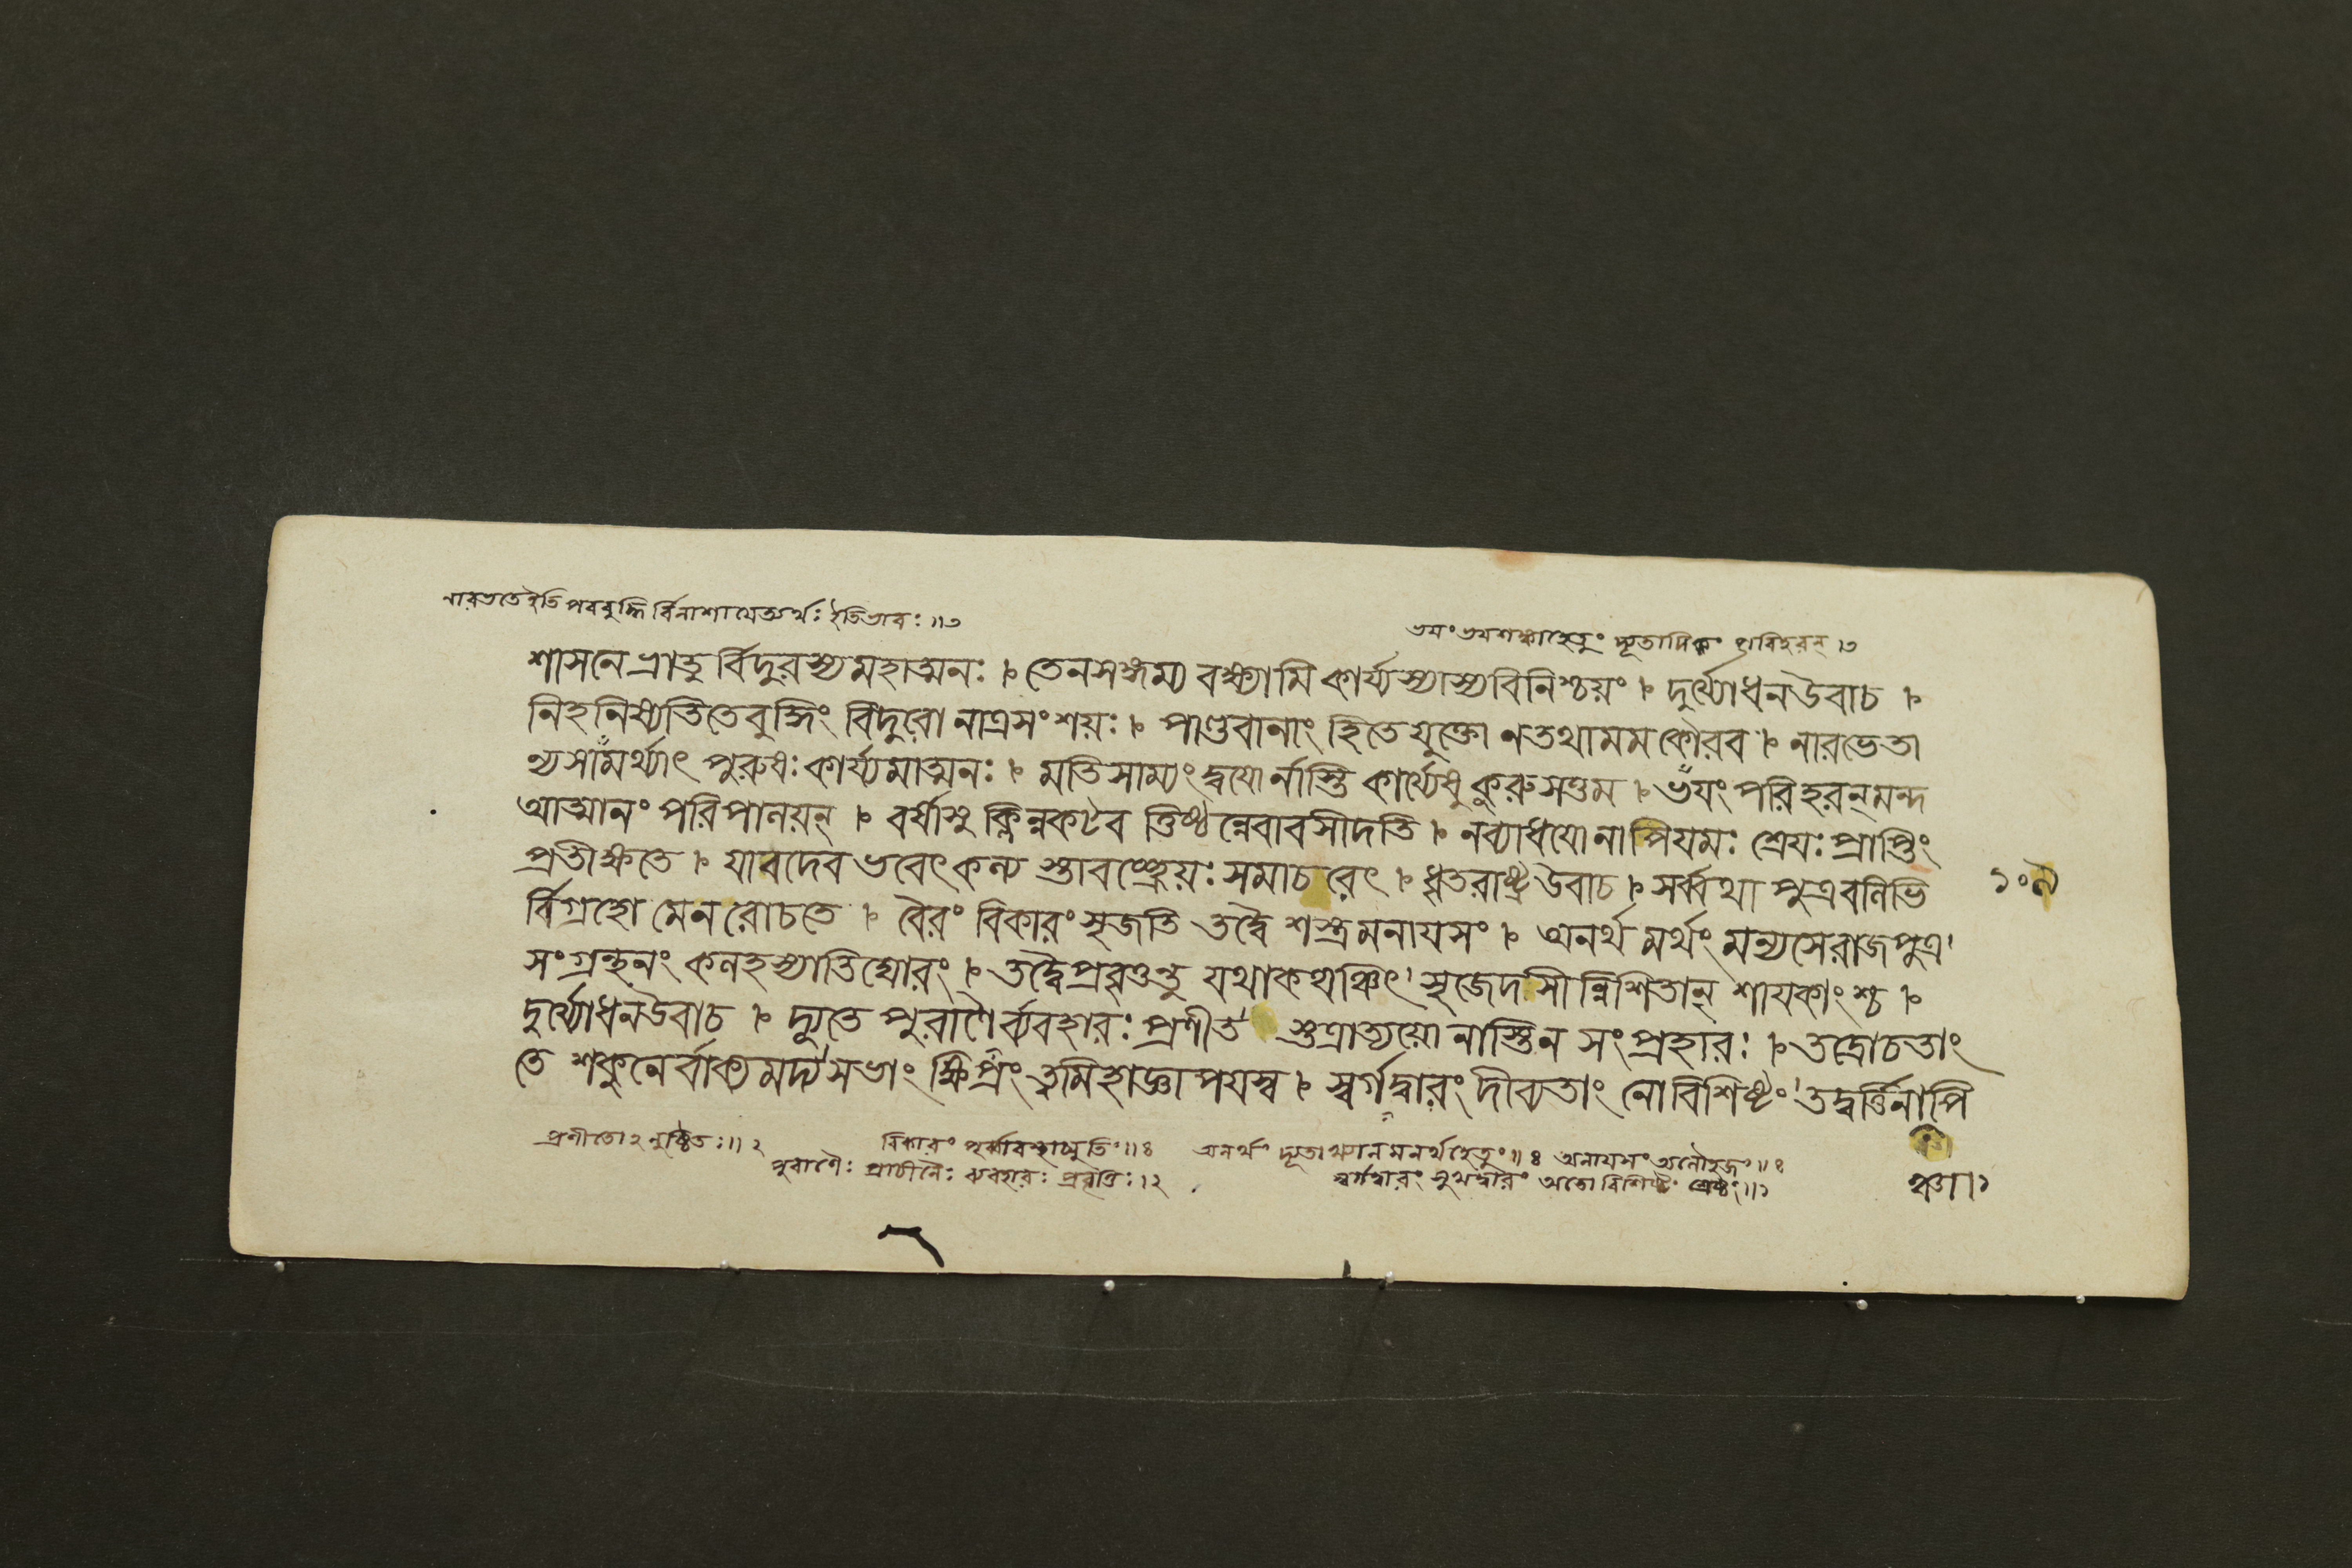 নারভতেইতি পরবুদ্ধি র্বিনাশায়েত্যর্থঃ ইতিভাবঃ॥৩
ভয়ং ভয়শঙ্কাহেতুং দ্যূতাদিকং পরিহরন্।৩
শাসনে ভ্রাতু র্বিদুরস্যমহাত্মনঃ । তেনসঙ্গম্য বক্ষ্যামি কার্য্যস্যাস্যবিনিশ্চয়ং । দুর্য্যোধনউবাচ ।
নিহনিষ্যতিতেবুদ্ধিং বিদুরো নাত্রসংশয়ঃ । পাণ্ডবানাং হিতেযুক্তো নতথামম কৌরব । নারভেতা
ন্যসামর্থ্যাৎ পুরুষঃ কার্য্যমাত্মনঃ । মতিসাম্যং দ্বয়োর্নাস্তি কার্য্যেষু কুরুসত্তম । ভয়ং পরিহরন্মন্দ
আত্মানং পরিপালয়ন্ । বর্ষাসু ক্লিন্নকটব ত্তিষ্ঠন্নেবাবসীদতি । নব্যাধয়ো নাপিযমঃ শ্রেয়ঃ প্রাপ্তিং
প্রতীক্ষতে । যাবদেব ভবেৎ কল্য স্তাবচ্ছ্রেয়ঃ সমাচরেৎ । ধৃতরাষ্ট্রউবাচ । সর্ব্বথা পুত্রবলিভি
১০৯
র্বিগ্রহো মেন রোচতে । বৈরং বিকারং সৃজতি তদ্বৈ শস্ত্রমনায়সং । অনর্থ মর্থং মন্যসেরাজপুত্র'
সংগ্রন্থনং কলহস্যাতিঘোরং । তদ্বৈপ্রবৃত্তন্তু যথাকথঞ্চিৎ' সৃজেদসীন্নিশিতান্ শায়কাংশ্চ ।
দুর্য্যোধনউবাচ । দ্যুতে পুরাণৈর্ব্যবহারঃ প্রণীত' স্তত্রাত্যয়ো নাস্তিন সংপ্রহারঃ । তদ্রোচতাং
তে শকুনে র্বাক্যমদ্য' সভাং ক্ষিপ্রং ত্বমিহাজ্ঞাপয়স্ব । স্বর্গদ্বারং দীব্যতাং নো বিশিষ্টং' তদ্বর্ত্তিনাপি
প্রণীতোঽনুষ্ঠিতঃ॥২ বিকারং পূর্ব্বাবস্থাচ্যুতিং॥৪ অনর্থং দ্যূতাখ্যান মনর্থহেতুং॥৪ অনায়সং অলৌহজং॥৪
পুরাণৈঃ প্রাচীনৈঃ ব্যবহারঃ প্রবৃত্তিঃ।২ স্বর্গদ্বারং সুখদ্বারং অতো বিশিষ্টং শ্রেষ্ঠং॥১